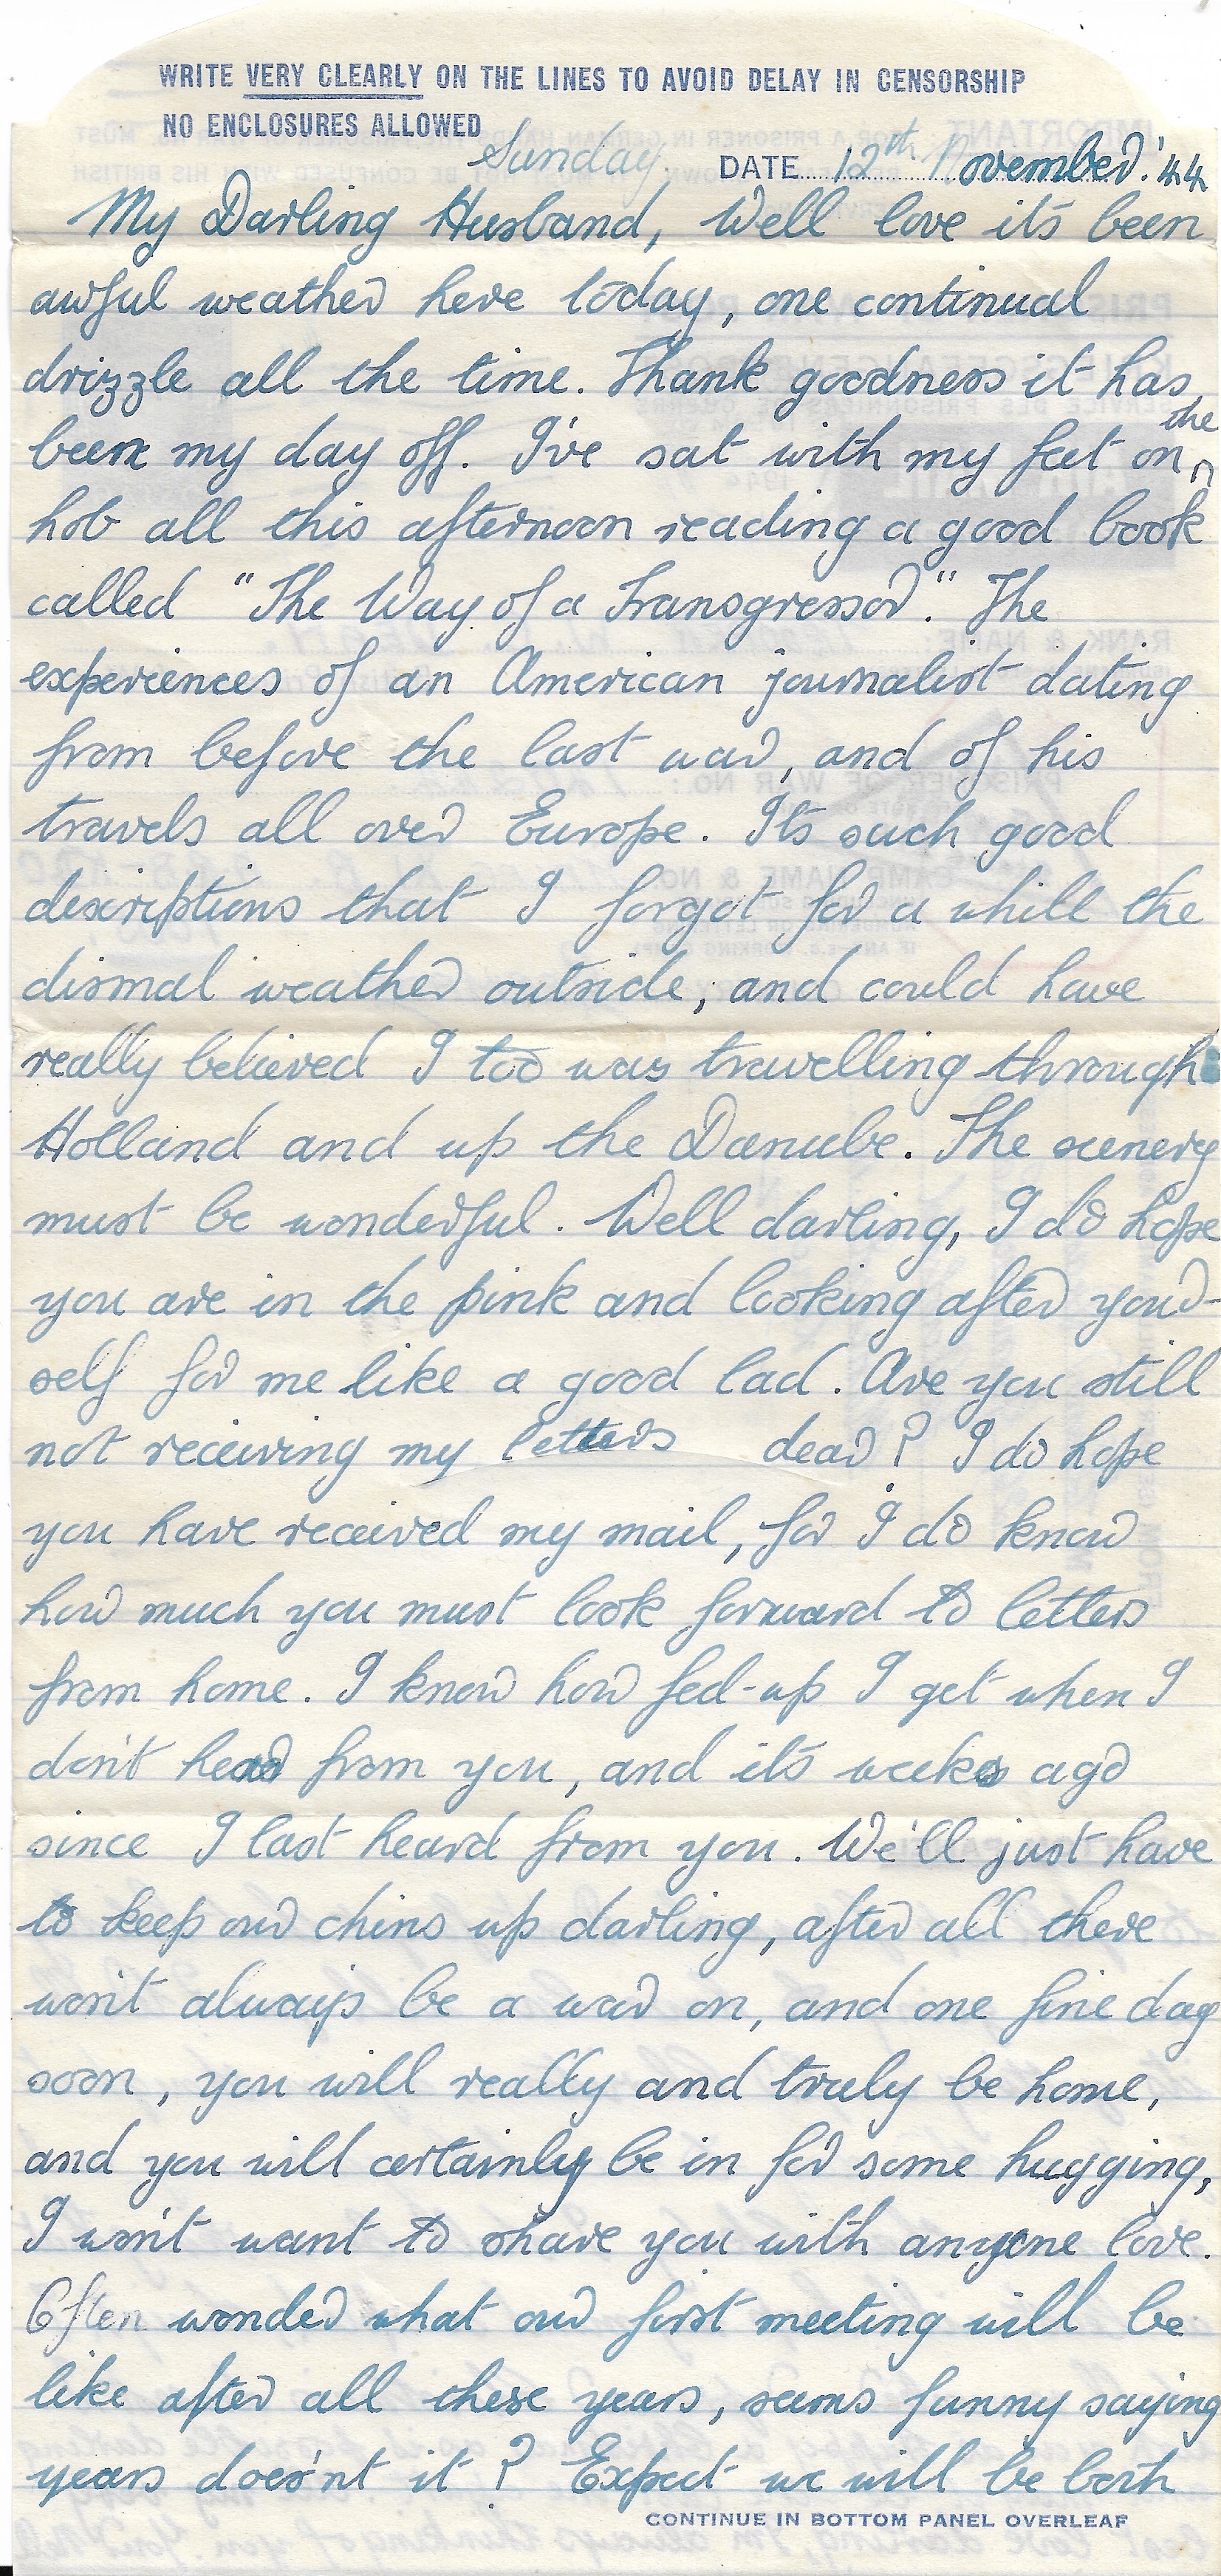 WRITE VERY CLEARLY ON THE LINES TO AVOID DELAY IN CENSORSHIP
NO ENCLOSURES ALLOWED
Sunday. DATE 12th November. '44
My Darling Husband, Well love it's been
awful weather here today, one continual
drizzle all the time. Thank goodness it has
been my day off. I've sat with my feet on the
hob all this afternoon reading a good book
called "The Way of a Transgressor." The
experiences of an American journalist dating
from before the last war, and of his
travels all over Europe. It's such good
discriptions that I forgot for a whill the
dismal weather outside, and could have
really believed I too was travelling through
Holland and up the Danube. The scenery
must be wonderful. Well darling, I do hope
you are in the pink and looking after your-
self for me like a good lad. Are you still
not receiving my letters dear? I do hope
you have received my mail, for I do know
how much you must look forward to letters
from home. I know how fed-up I get when I
don't hear from you, and it's weeks ago
since I last heard from you. We'll just have
to keep our chins up darling, after all there
won't always be a war on, and one fine day
soon, you will really and truly be home,
and you will certainly be in for some hugging,
I won't want to share you with anyone love.
Often wonder what our first meeting will be
like after all these years, seems funny saying
years does'nt it? Expect we will be both
CONTINUE IN BOTTOM PANEL OVERLEAF